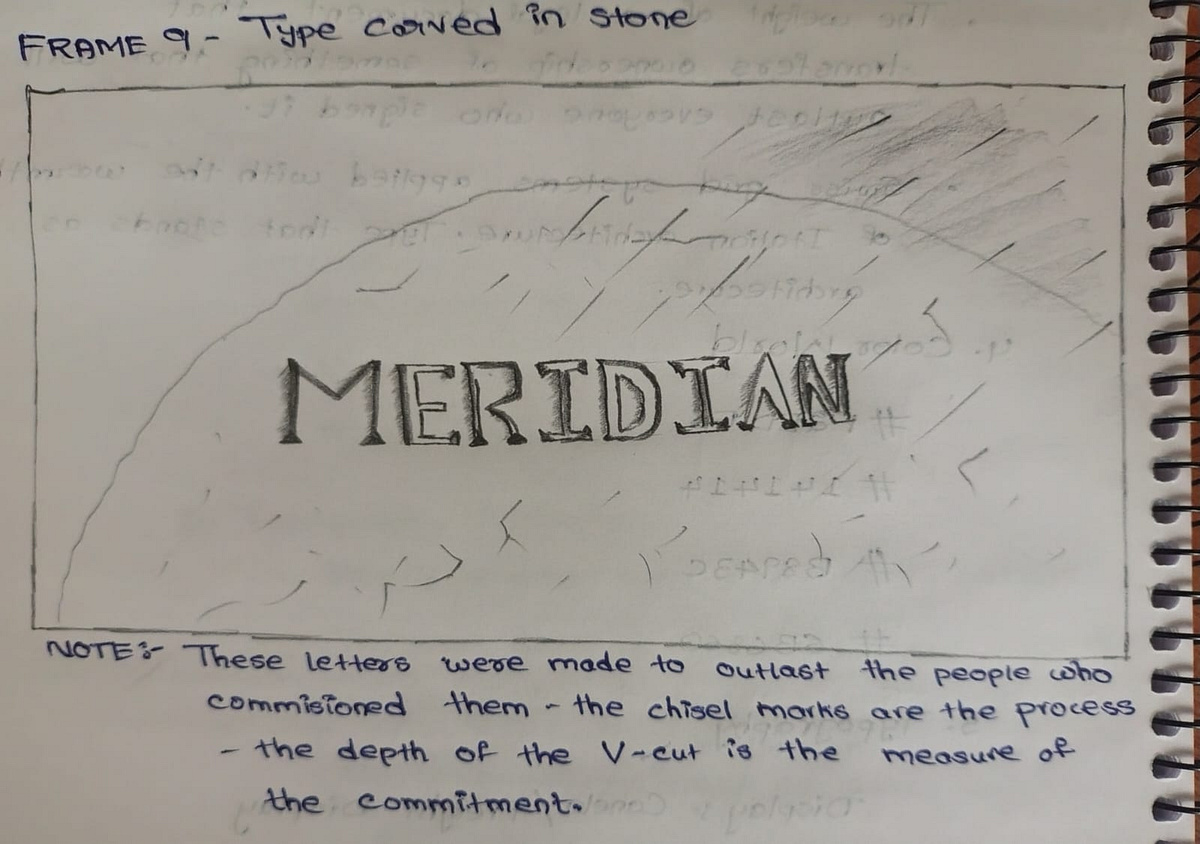 FRAME 9 - Type carved in stone
MERIDIAN
NOTE:- These letters were made to outlast the people who
commisioned them - the chisel marks are the process
- the depth of the V-cut is the measure of
the commitment.